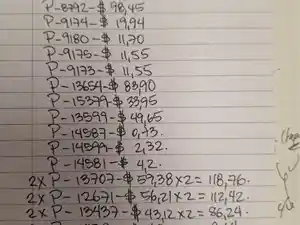 P-8792-$ 98,45
P-9174-$ 19,94
P-9180-$ 11,70
P-9175-$ 11,55
P-9173-$ 11,55
P-13654-$ 83,90
P-15379-$ 33,95
P-13599-$ 49,65
P-14587-$ 0,73.
P-14599-$ 2,32.
P-14581-$ 4,2.
2x P-13707-$ 59,38x2= 118,76.
2x P-12671-$ 56,21x2= 112,42.
2x P-13437-$ 43,12x2= 86,24.